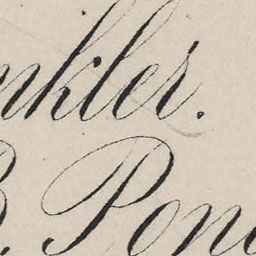 nkler.
B. Pond